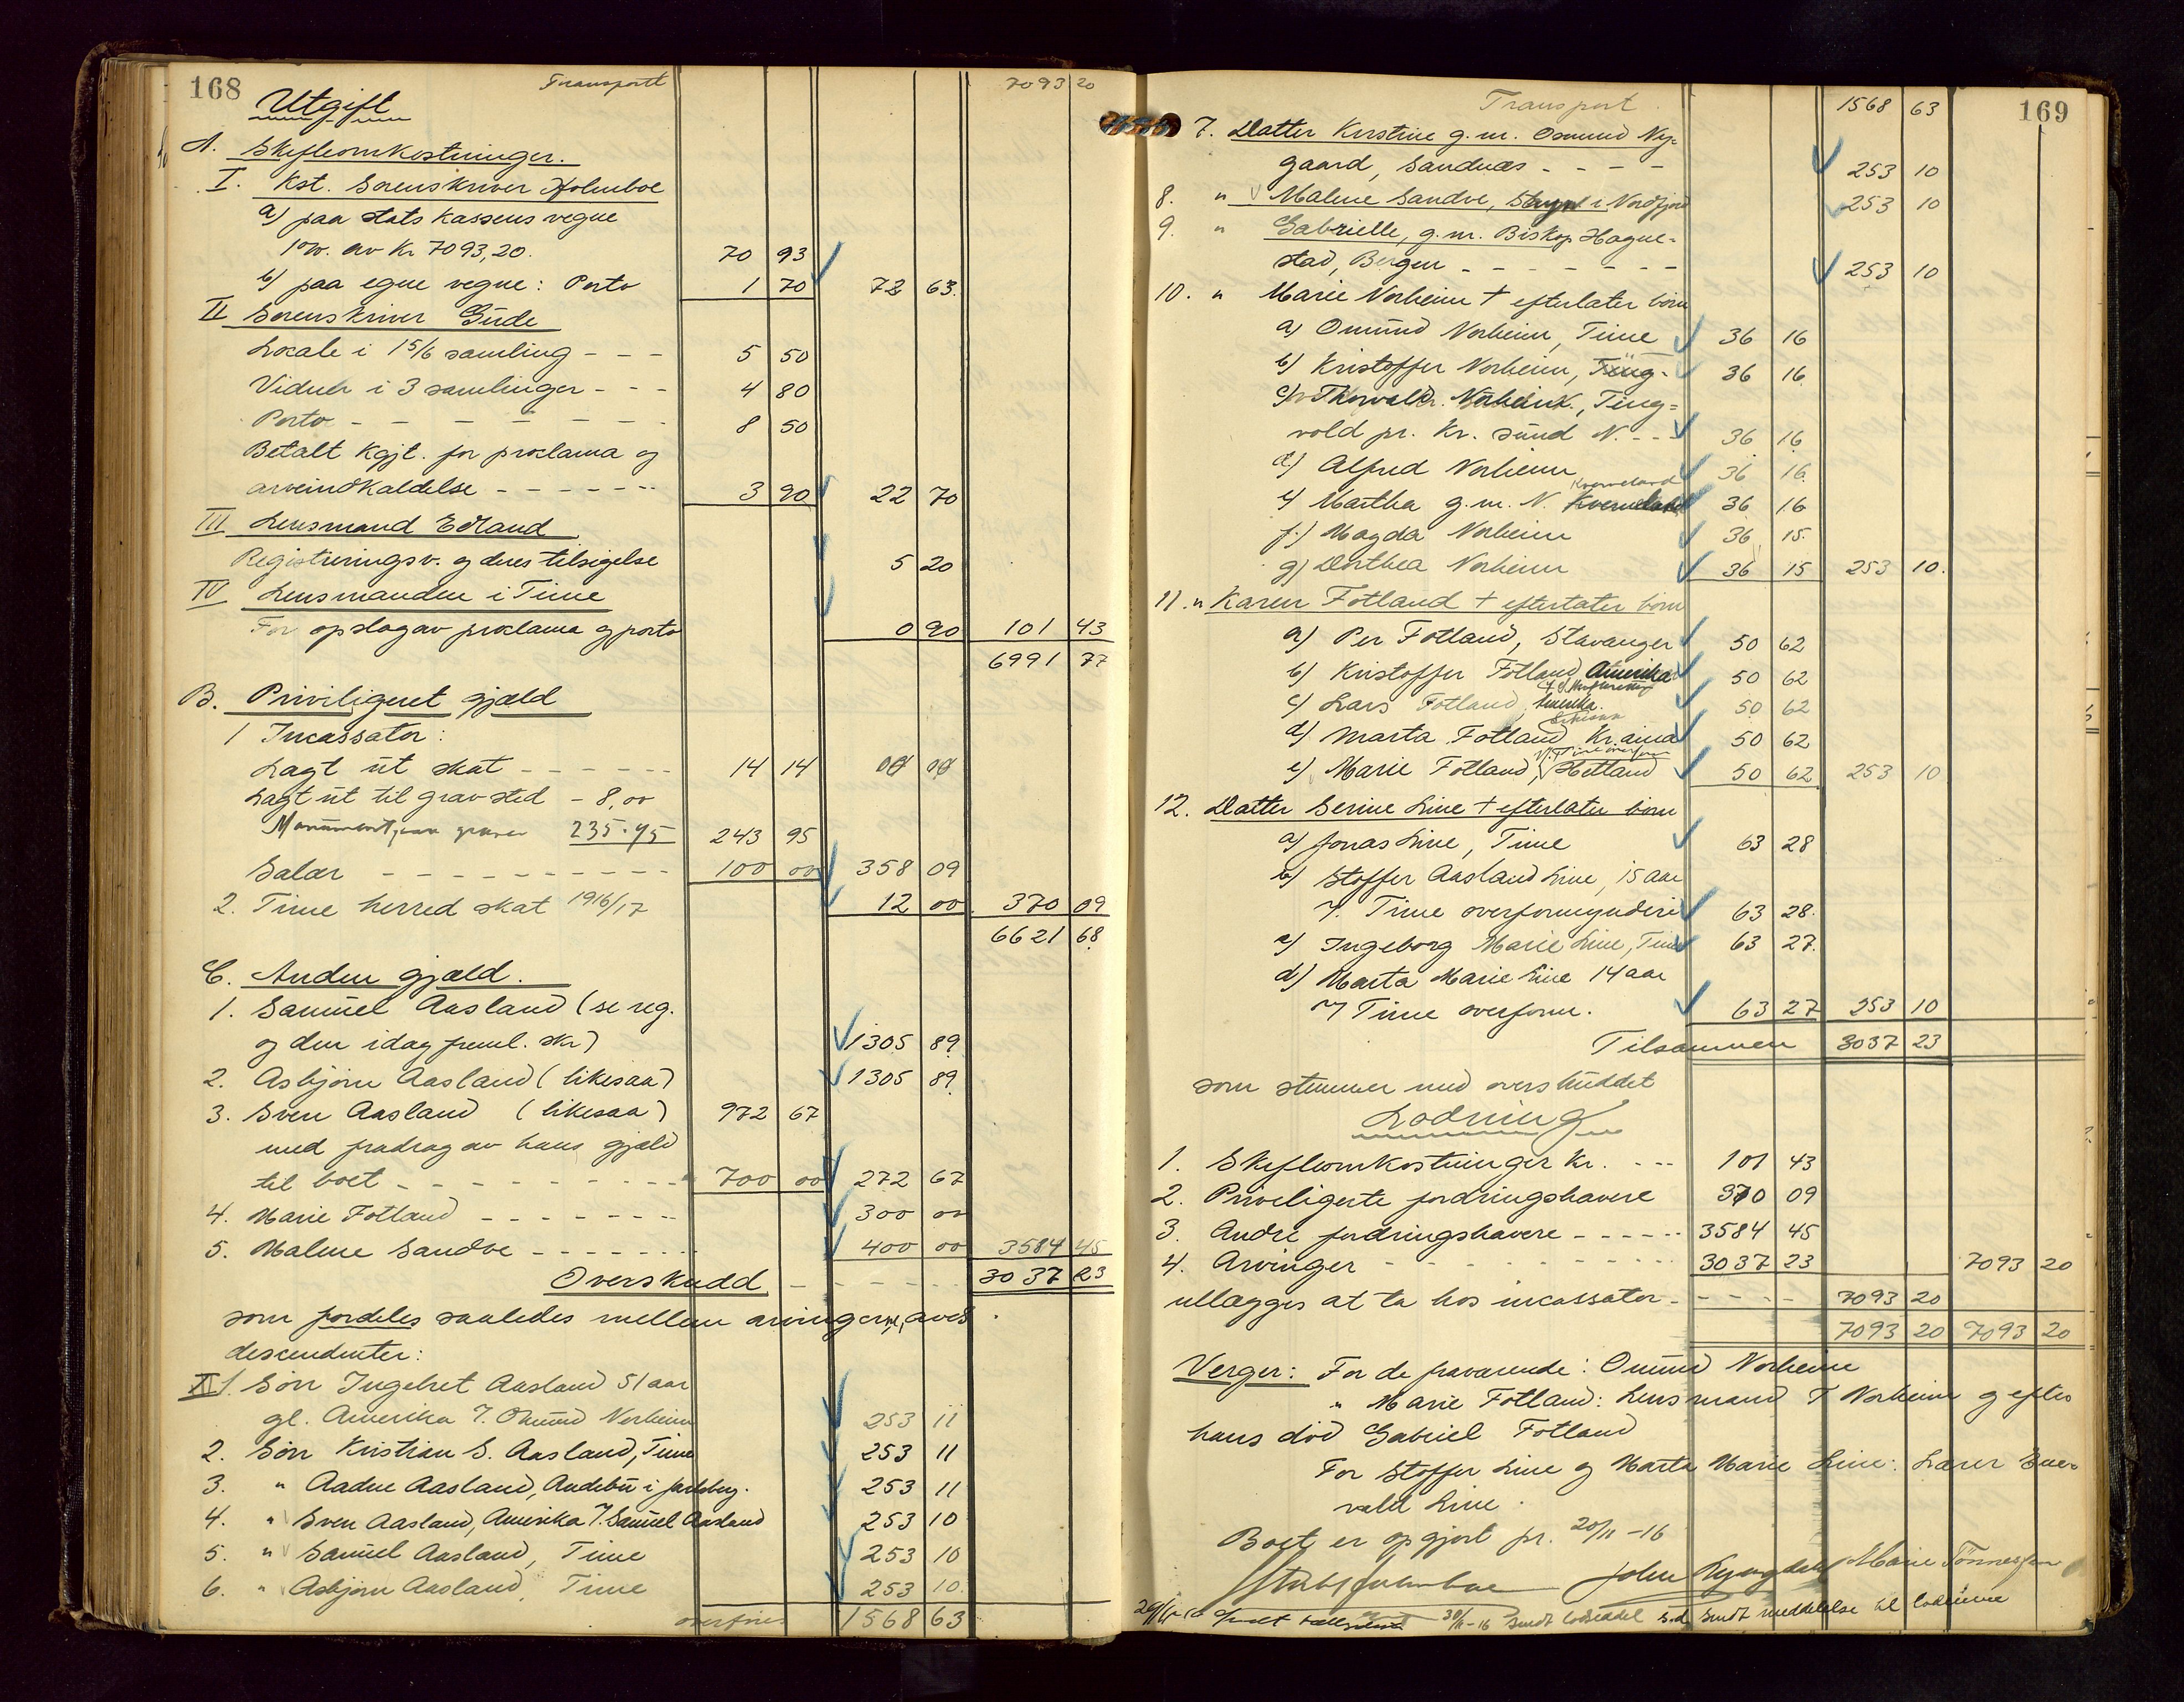 168
Transport 7093 20
Utgift
A. Skifteomkostninger.
I. Kst. Sorenskriver Holmboe
a) paa stats kassens vegne
1% av Kr 7093,20. 70 93
b) paa egne vegne: Porto 1 70 72 63.
II Sorenskriver Gude
Locale i 15/6 samling - - - 5 50
Vidner i 3 samlinger - - - 4 80
Porto - - - - - - 8 50
Betalt Kgjt. for proclama og
arveindkaldelse - - - - - - 3 90 22 70
III Lensmand Edland
Registreringsv. og deres tilsigelse 5 20
IV Lensmanden i Time
For opslag av proclama og porto 0 90 101 43
6991 77
B. Priviligeret gjæld
1 Incassator:
Lagt ut skat - - - - - - 14 14
Lagt ut til gravsted - 8,00
Monument paa graven 235.95 243 95
Salær - - - - - - - - - 100 00 358 09
2. Time herred skat 1916/17 12 00 370 09
6621 68
C. Anden gjæld.
1. Samuel Aasland (se reg.
og den idag freml. skr) 1305 89
2. Asbjørn Aasland (likesaa) 1305 89
3. Sven Aasland (likesaa) 972 67
med fradrag av hans gjæld
til boet - - - - - - - - 700 00 272 67
4. Marie Fotland - - - - - - 300 00
5. Malene Sandve - - - - - - 400 00 3584 45
Overskudd - - - - - 3037 23
som fordeles saaledes mellem arvingerne, avds
descendenter:
1. Søn Ingebret Aasland 51 aar
gl. Amerika V. Omund Norheim 253 11
2. Søn Kristian S. Aasland, Time 253 11
3. " Aadne Aasland, Andebu i Jarlsberg. 253 11
4. " Sven Aasland, Amerika V. Samuel Aasland 253 10
5. " Samuel Aasland, Time 253 10
6. " Asbjørn Aasland, Time 253 10.
overføres 1568 63
169
Transport. 1568 63
7. Datter Kirstine g. m. Osmund Ny-
gaard, Sandnæs - - - - 253 10
8. " Malene Sandve, Stryn i Nordfjord 253 10
9. " Gabrielle, g. m. Biskop Hogne-
stad, Bergen - - - - - - - 253 10
10. " Marie Norheim † efterlater børn
a) Omund Norheim, Time 36 16
b) Kristoffer Norheim, Ting- 36 16.
c) Thorvald Norheim, Ting=
vold pr. Kr. sund N. - - 36 16
d) Alfred Norheim 36 16.
e) Martha g. m. N. Kverneland Kverneland 36 16
f.) Magda Norheim 36 15.
g) Dorthea Norheim 36 15 253 10.
11. " Karen Fotland † efterlater børn
a) Per Fotland, Stavanger 50 62
b) Kristoffer Fotland Amerika 50 62
c) Lars Fotland, Amerika. 50 62
d) Marta Fotland Kr.ania 50 62
e) Marie Fotland, V. Time overform Hetland 50 62 253 10
12. Datter Serine Line † efterlater børn
a) Jonas Line, Time 63 28
b) Stoffer Aasland Line, 15 aar
V. Time overformynderi 63 28.
c) Ingeborg Marie Line, Time 63 27.
d) Marta Marie Line 14 aar
V Time overform. 63 27 253 10
Tilsammen 3037 23
som stemmer med overskuddet
Lodning
1. Skifteomkostninger Kr. - - - 101 43
2. Priveligerte fordringshavere 370 09
3. Andre fordringshavere - - - - - 3584 45
4. Arvinger - - - - - - - - - 3037 23 7093 20
utlægges at ta hos incassator - - - - - 7093 20
7093 20 7093 20
Verger: For de fraværende: Omund Norheim
" Marie Fotland: Lensmand T Norheim og efter
hans død Gabriel Fotland
For Stoffer Line og Marta Marie Line: Lærer Sver
vold Line.
Boet er opgjort pr. 20/11 -16
John Lyngdal Marie Tønnessen
30/11-16 sendt lodseddel s.d. sendt meddelelse til lodeierne